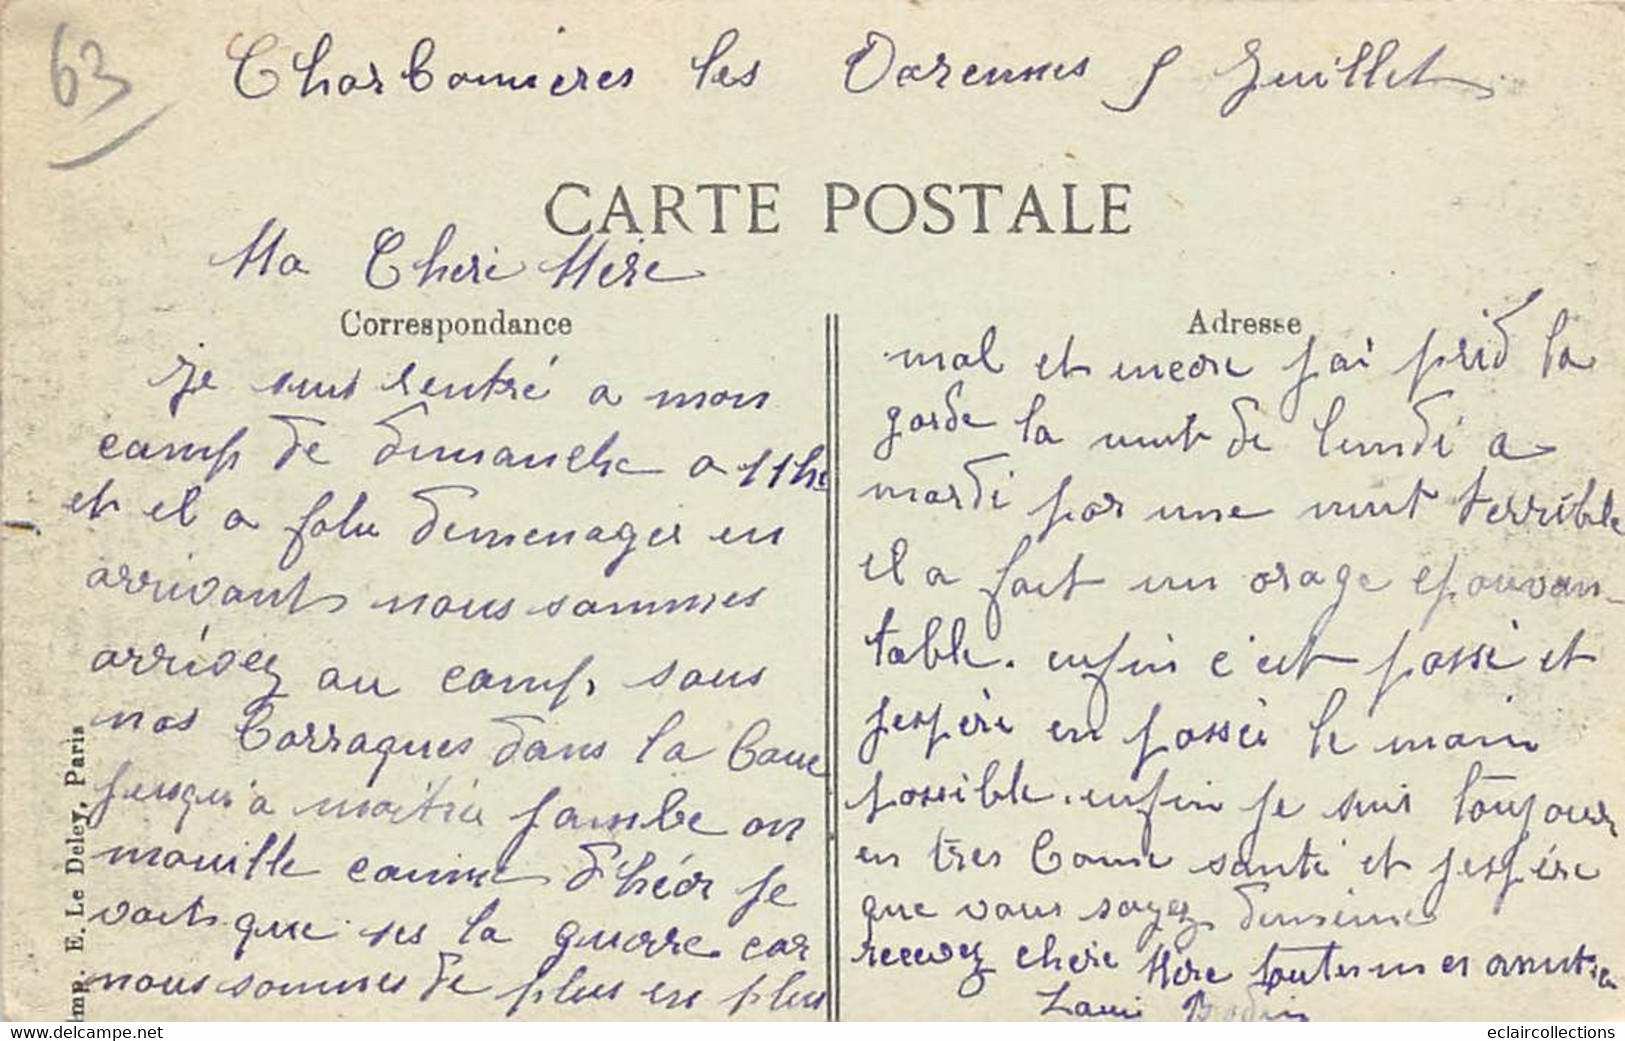 63
Charbonnieres les Varennes 5 Juillet
CARTE POSTALE
Ma Cheri Mere
Correspondance
je suis rentré a mon
camp de dimanche a 11he
et il a falu demenager en
arrivant nous sommes
arrivez au camp sous
nos barraques dans la boue
jusqu'a moitié jambe on
mouille comme d'héor je
voit que ses la guerre car
nous sommes de plus en plus
Adresse
mal et encore j'ai prid la
garde la nuit de lundi a
mardi par une nuit terrible
il a fait un orage epouvan-
table. enfin c'est passé et
jespère en passer le moin
possible. enfin je suis toujour
en tres bonne santé et jespére
que vous soyez de meme
recevez chere Mere toutes mes amitié
Louis Bodin
Imp. E. Le Deley, Paris
eclaircollections
delcampe.net